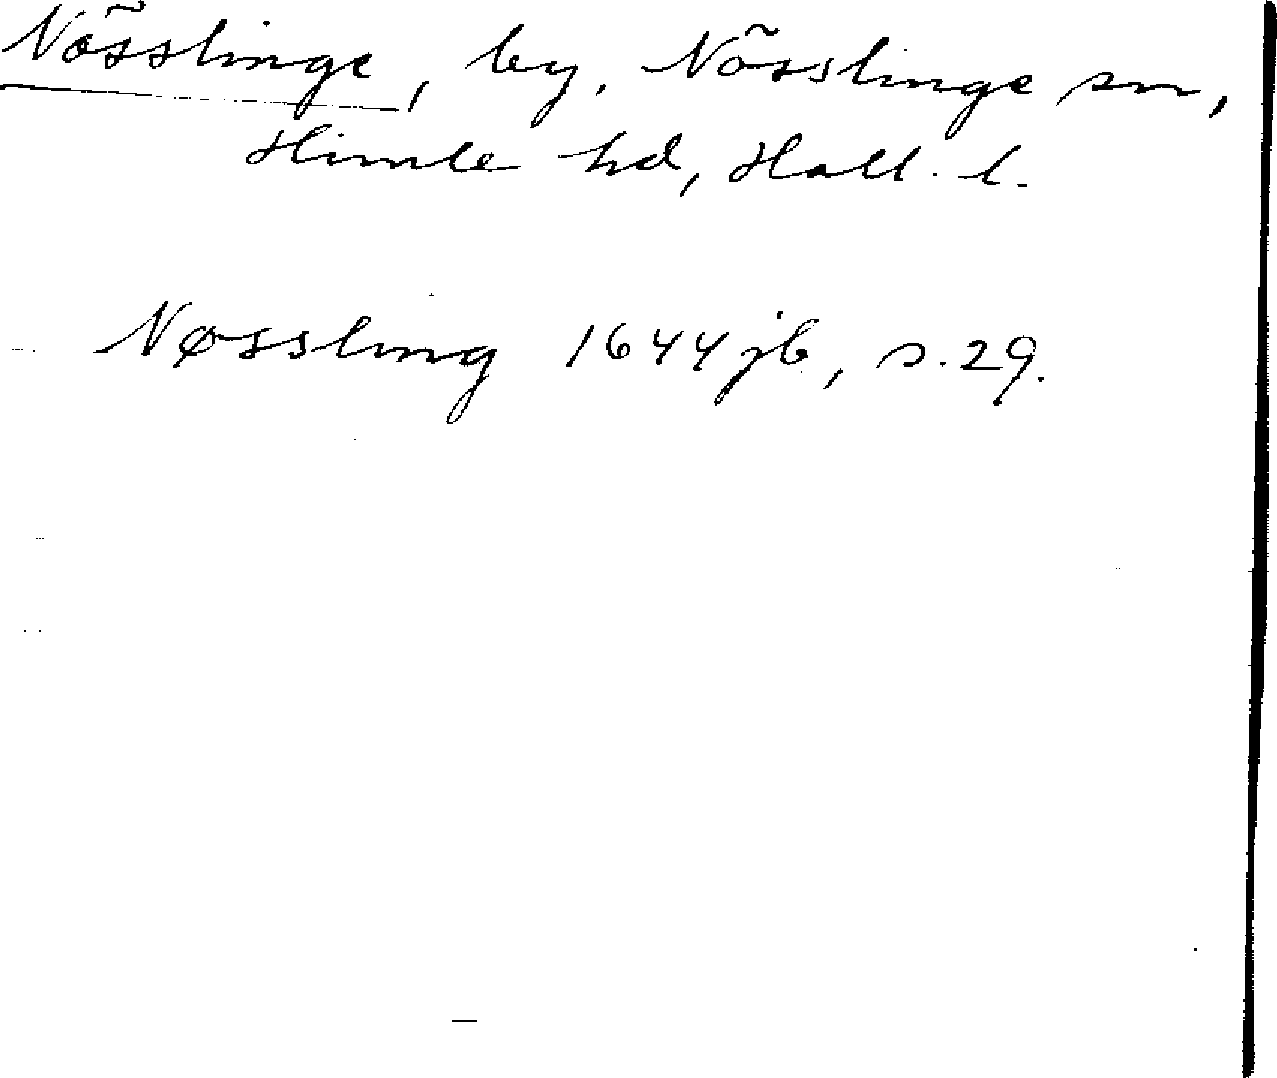 Nösslinge, by, Nösslinge sn,
Himle hd, Hall. l.
Nøssling 1644 jb, s. 29.